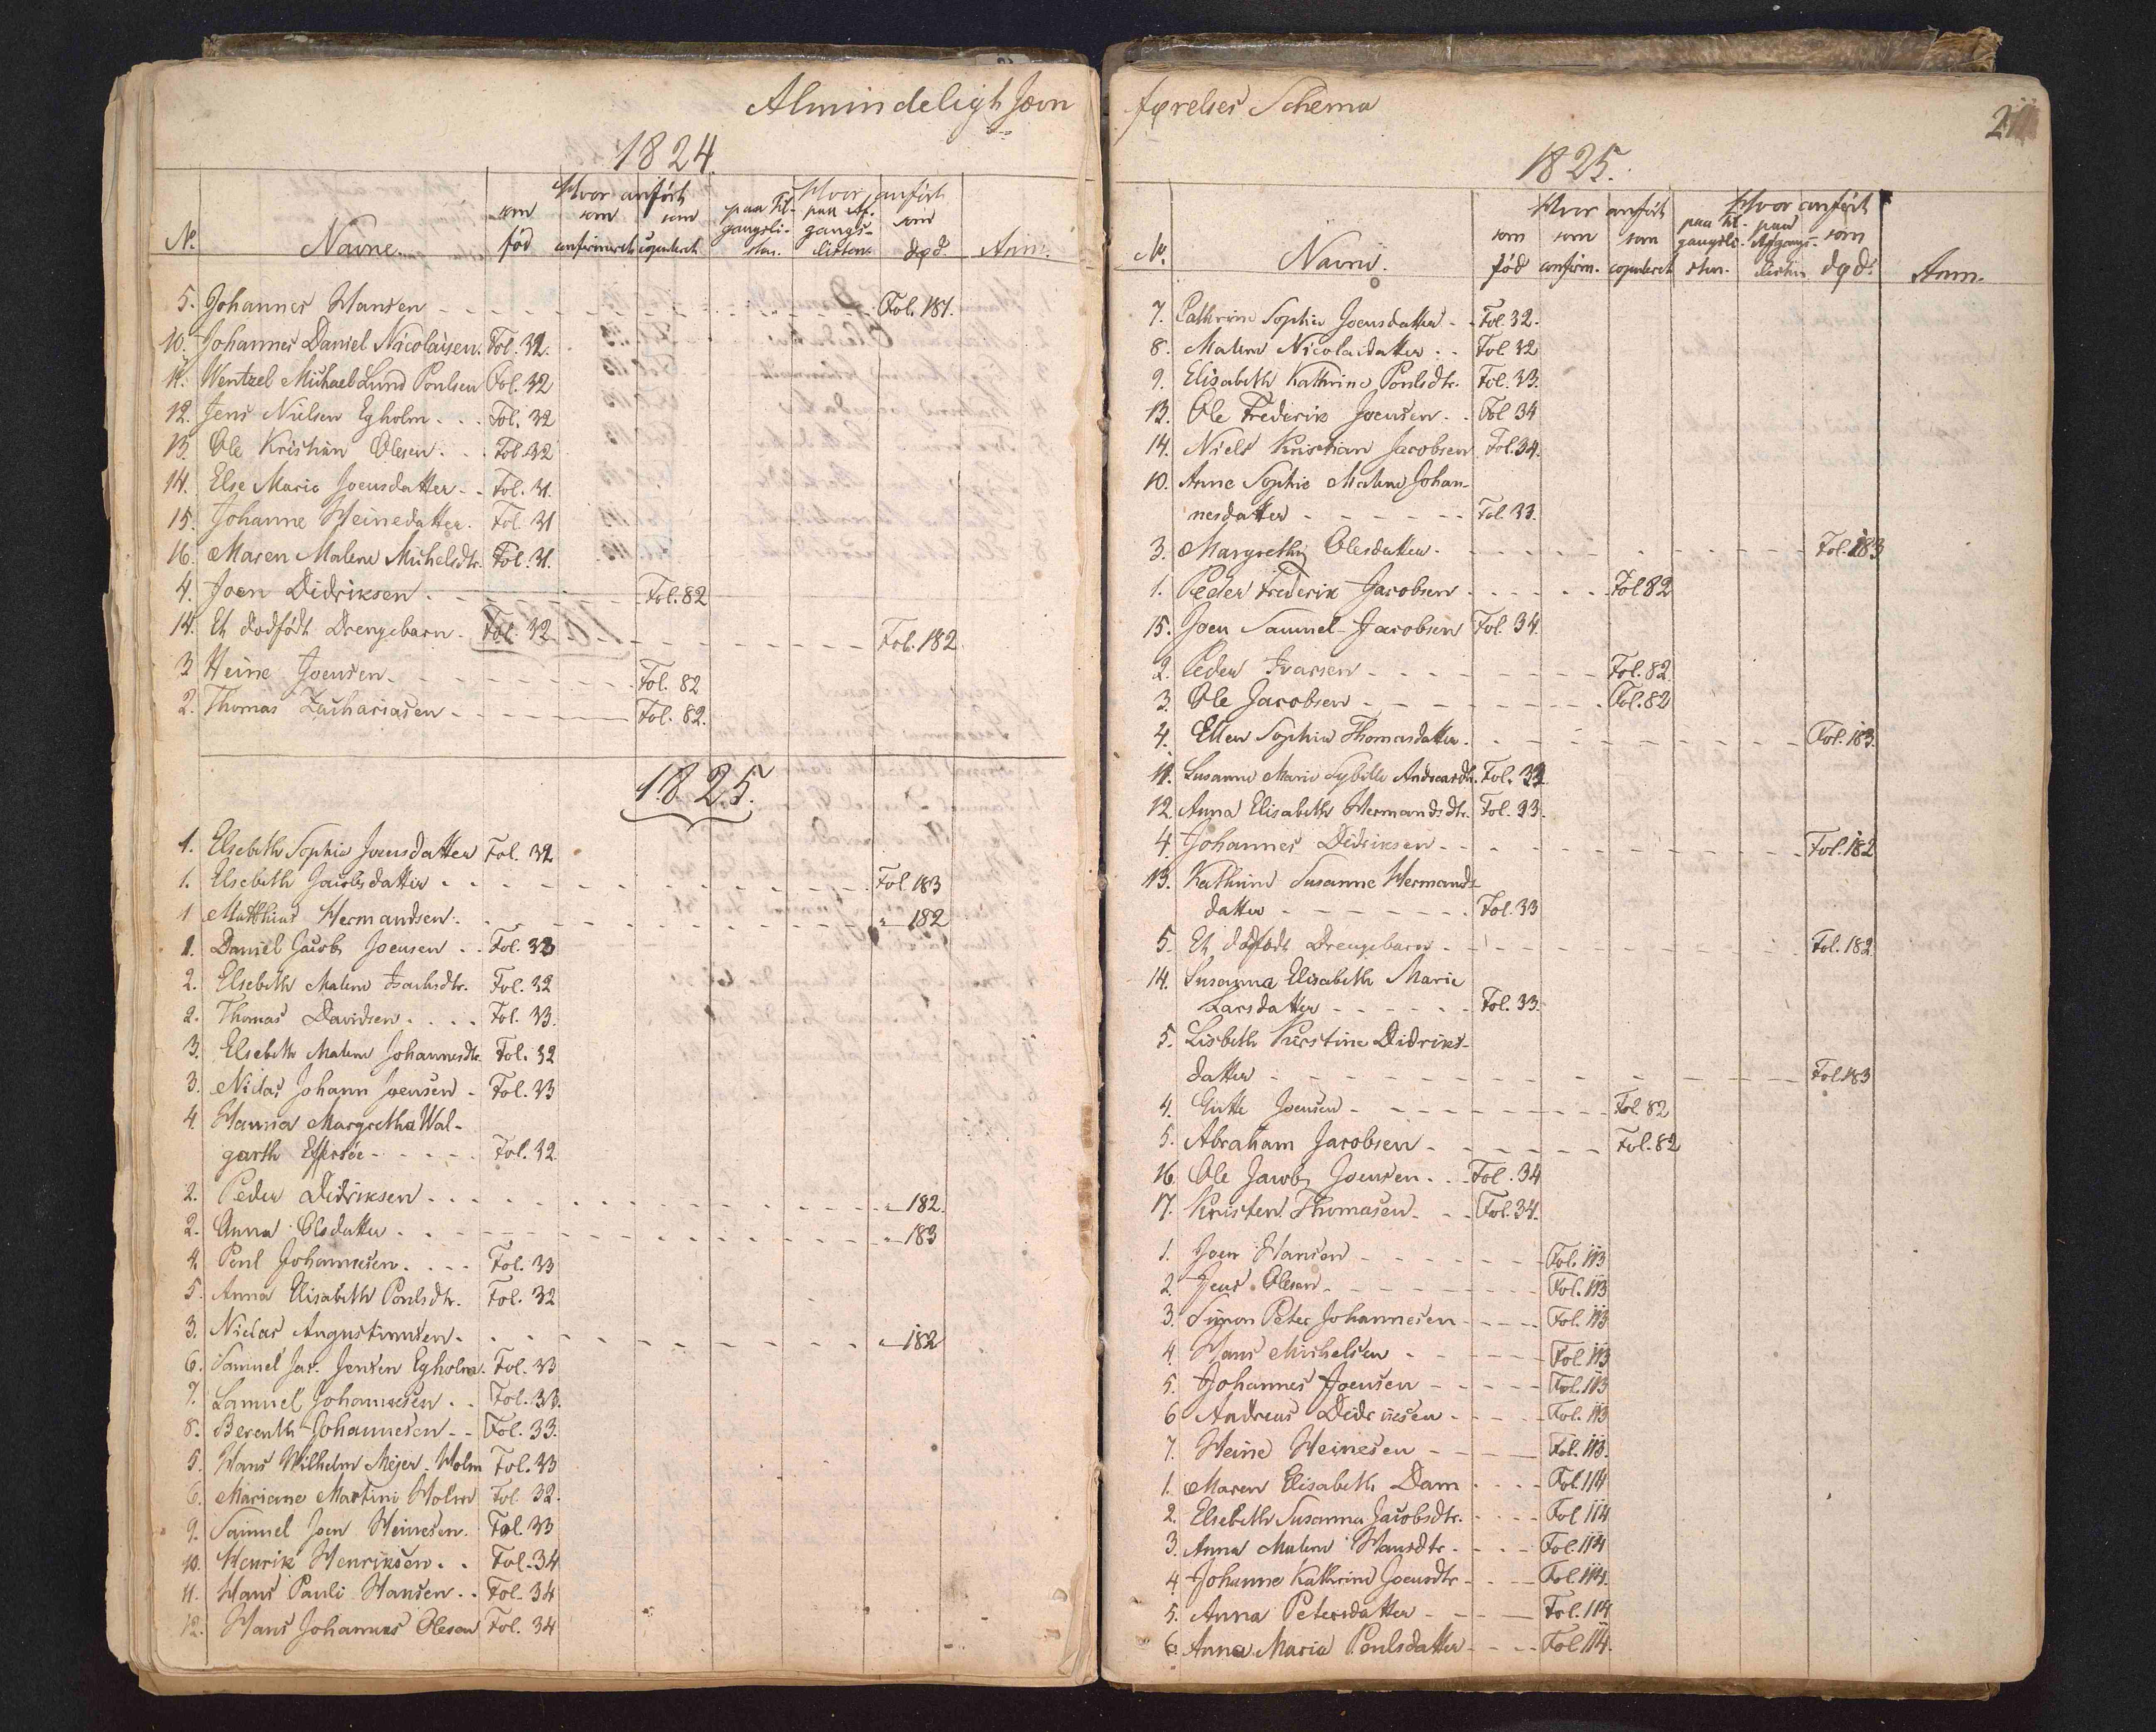 Almindeligt Jevn
1824.
Hvor anført
Hvor anført
No. Navne. som fød som confirmeret som copuleret paa Til-gangsli-sten. paa Af-gangs-listen. som død. Anm.
5. Johannes Hansen Fol. 181.
10. Johannes Daniel Nicolaisen. Fol. 32.
11. Wentzel Michael Lund Poulsen Fol. 32
12. Jens Nielsen Egholm Fol. 32
13. Ole Kristian Olesen Fol. 32
14. Else Maria Joensdatter Fol. 31.
15. Johanne Heinedatter. Fol. 31
16. Maren Malene Michelsdtr. Fol. 31.
4. Joen Didriksen Fol. 82
14. Et dødfødt Drengebarn Fol. 32 Fol. 182.
3 Heine Joensen Fol. 82
2. Thomas Zachariasen Fol. 82.
1825.
1. Elsebeth Sophie Joensdatter Fol. 32
1. Elsebeth Jacobsdatter Fol. 183
1 Matthias Hermandsen " 182
1. Daniel Jacob Joensen Fol. 33
2. Elsebeth Malene Isachsdtr. Fol. 32
2. Thomas Davidsen Fol. 33.
3. Elsebeth Malene Johannesdtr. Fol. 32
3. Niclas Johann Joensen Fol. 33
4. Hanna Margretha Wal-
garth Effersøe Fol. 32.
2. Peder Didriksen " 182.
2. Anna Olsdatter " 183
4. Poul Johannesen Fol. 33
5. Anna Elisabeth Poulsdtr. Fol. 32
3. Niclas Augustinusen " 182
6. Samuel Jac. Jensen Egholm. Fol. 33
7. Samuel Johannesen Fol. 33.
8. Berenth Johannesen Fol. 33.
5. Hans Wilhelm Mejer Holm Fol. 33
6. Mariane Martini Holm Fol. 32.
9. Samuel Joen Heinesen. Fol. 33
10. Henrik Henriksen Fol. 34
11. Hans Pauli Hansen Fol. 34
12. Hans Johannes Olesen Fol. 34
førelses Schema
1825.
Hvor anført
Hvor anført
No. Navne. som fød som confirm. som copuleret paa Til-gangsli-sten. paa Afgangs-listen som død. Anm.
7. Cathrine Sophie Joensdatter Fol. 32.
8. Malene Nicolaidatter Fol. 32
9. Elisabeth Kathrine Poulsdtr. Fol. 33.
13. Ole Frederik Joensen Fol 34
14. Niels Kristian Jacobsen Fol. 34.
10. Anne Sophie Malene Johan-
nesdatter Fol 33.
3. Margrethe Olesdatter Fol. 183
1. Peder Frederik Jacobsen Fol 82
15. Joen Samuel Jacobsen Fol. 34.
2. Peder Ivarsen Fol. 82.
3. Ole Jacobsen Fol. 82
4. Ellen Sophie Thomasdatter Fol. 183.
11. Susanne Marie Sybille Andreasdtr. Fol. 33
12. Anna Elisabeth Hermandsdtr. Fol. 33.
4. Johannes Didriksen Fol. 182
13. Kathrine Susanne Hermands-
datter Fol. 33
5. Et dødfødt Drengebarn Fol. 182
14. Susanna Elisabeth Marie
Larsdatter Fol. 33.
5. Lisbeth Kirstine Didriks-
datter Fol 183
4. Gutte Joensen Fol. 82
5. Abraham Jacobsen Fol. 82
16. Ole Jacob Joensen Fol. 34
17. Kristen Thomasen Fol. 34.
1. Joen Hansen Fol. 113
2. Jens Olesen Fol. 113
3. Simon Peter Johannesen Fol. 113
4. Hans Michelsen Fol. 113
5. Johannes Joensen Fol. 113
6 Andreas Didriksen Fol. 113
7. Heine Heinesen Fol. 113.
1. Maren Elisabeth Dam Fol. 114
2. Elsebeth Susanna Jacobsdtr. Fol 114
3. Anna Malene Hansdtr. Fol. 114
4. Johanne Kathrine Joensdtr. Fol. 114.
5. Anna Petersdatter Fol. 114
6. Anna Maria Poulsdatter Fol. 114.